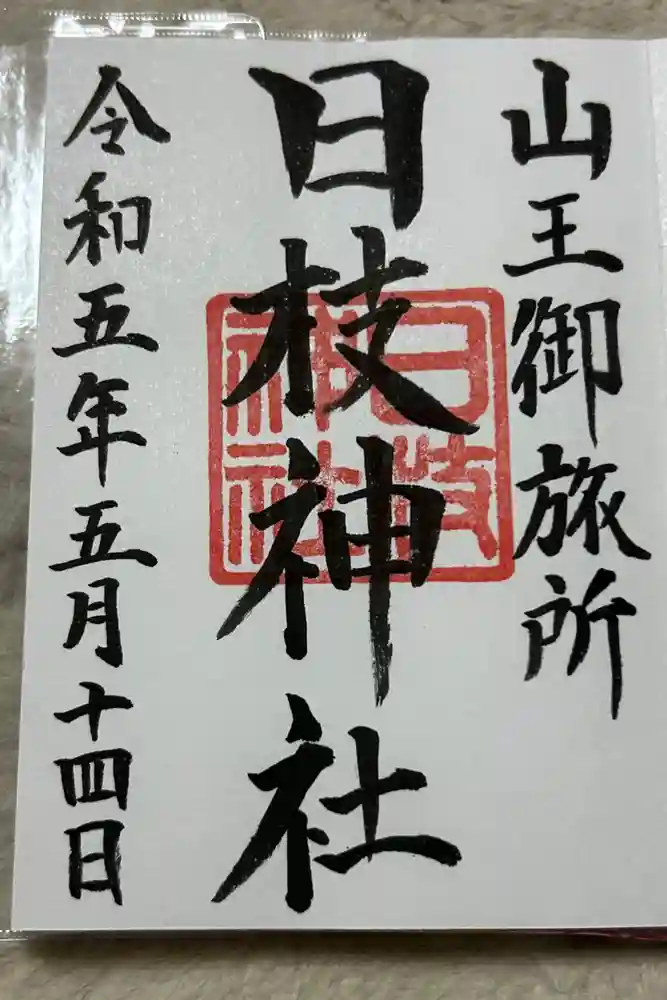 山王御旅所
日枝神社
日枝
神社
令和五年五月十四日